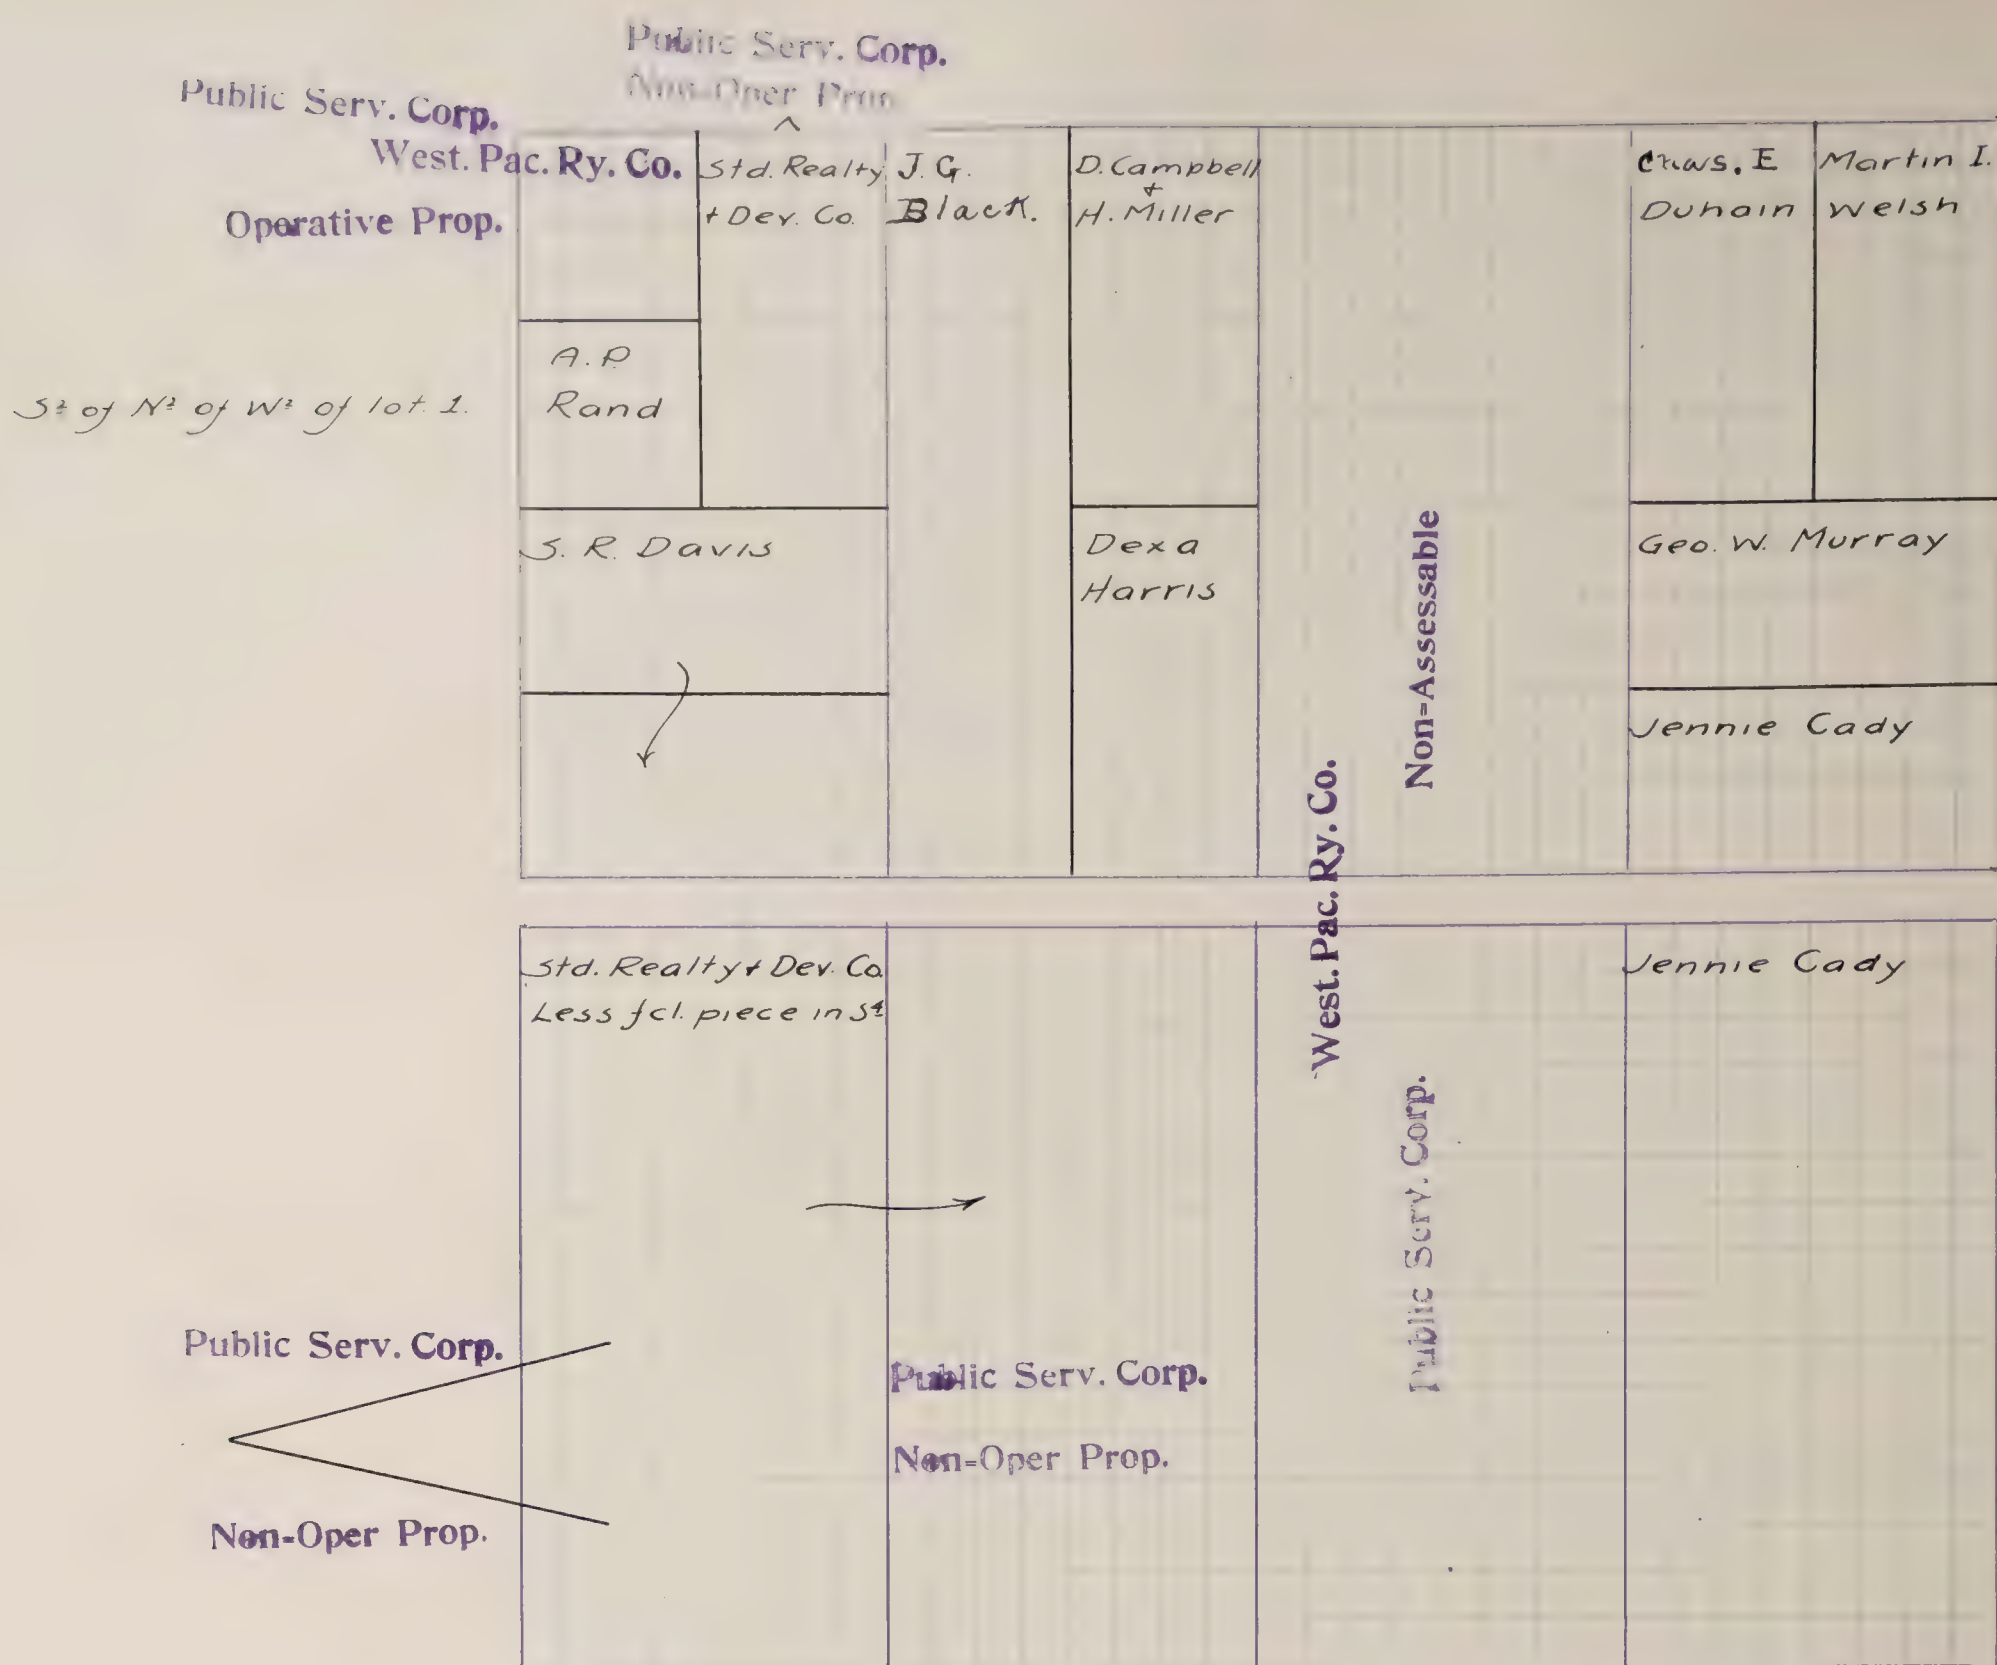 Public Serv. Corp.
Non-Oper Prop.
Public Serv. Corp.
West. Pac. Ry. Co.
Operative Prop.
Std. Realty
+ Dev. Co.
J. G.
Black.
D. Campbell
+
H. Miller
Chas. E
Duhain
Martin I.
Welsh
A. P.
Rand
S½ of N½ of W½ of lot 1.
S. R. Davis
Dexa
Harris
Non-Assessable
Geo. W. Murray
Jennie Cady
West. Pac. Ry. Co.
Std. Realty + Dev. Co.
Less fcl. piece in S¼
Jennie Cady
Public Serv. Corp.
Public Serv. Corp.
Non-Oper Prop.
Public Serv. Corp.
Non-Oper Prop.